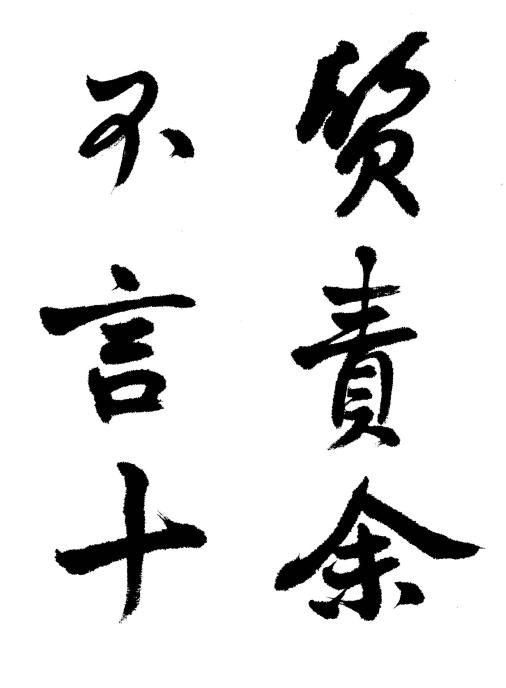 質責余
不言十